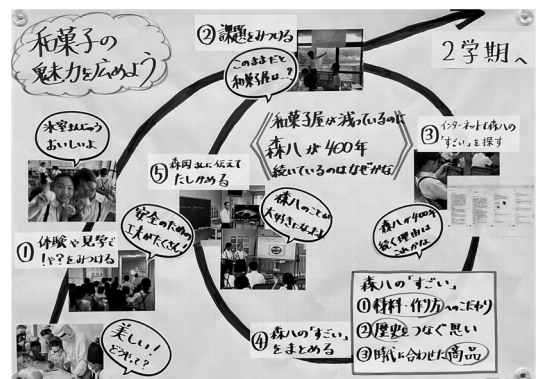 和菓子の
魅力を広めよう
②課題をみつける
このままだと
和菓子屋は…?
2学期へ
氷室まんじゅう
おいしいよ
和菓子屋が減っているのに
森八が400年
続いているのはなぜかな
③インターネットで森八の
「すごい」を探す
⑤森岡さんに伝えて
たしかめる
森八のことが
大好きになったよ
安全のための
工夫がたくさん!
森八が400年
続く理由は
これかな
①体験や見学で
!や?をみつける
美しい!
どうやって?
④森八の「すごい」
をまとめる
森八の「すごい」
①材料・作り方へのこだわり
②歴史をつなぐ思い
③時代に合わせた商品